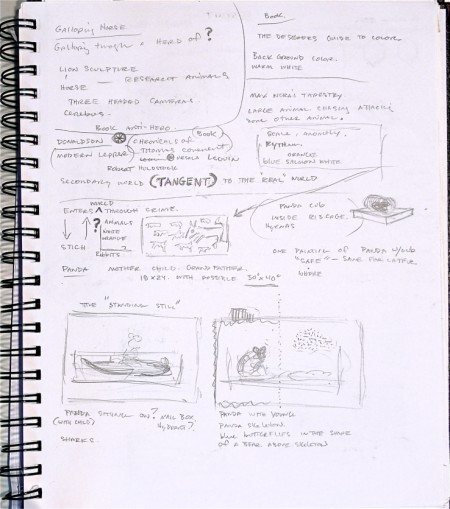 Galloping Horse
Galloping through a Herd of?
Lion Sculpture
Horse Research Animals
Three Headed Cameras
Cerebrus.
Book
The Designers Guide to Color
Back Ground Color.
Warm White
Max Norei Tapestry.
Large animal chasing attacking
some other animal.
Book Anti-Hero.
Donaldson Chronicles of Book
Modern Lepper Thomas Covenant
Ursula LeGuin
Robert Holdstock
Secondary World (Tangent) to the "Real" World
Scale, anomaly,
Rythm.
Orange
blue salmon white
World
Enters through crime.
? Animals
Nose
Orange
Stich
Rabbits
Panda cub
inside ribcage.
Hyenas
One painting of Panda w/cub
"Safe" - Save for later
where
Panda Mother Child. Grandfather.
18x24. with possible 30"x40"
The "Standing Still"
Panda sitting on? Mail Box
(with child) Hydrant?
Sharks.
Panda with young
Panda skeleton
blue butterflies in the shape
of a bear above skeleton